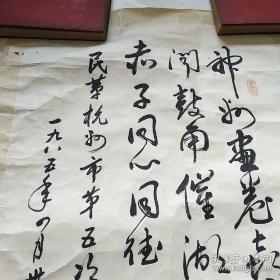 神州画卷
闻鼓角催潮
赤子同心同德
民革杭州市第五次
一九八五年八月